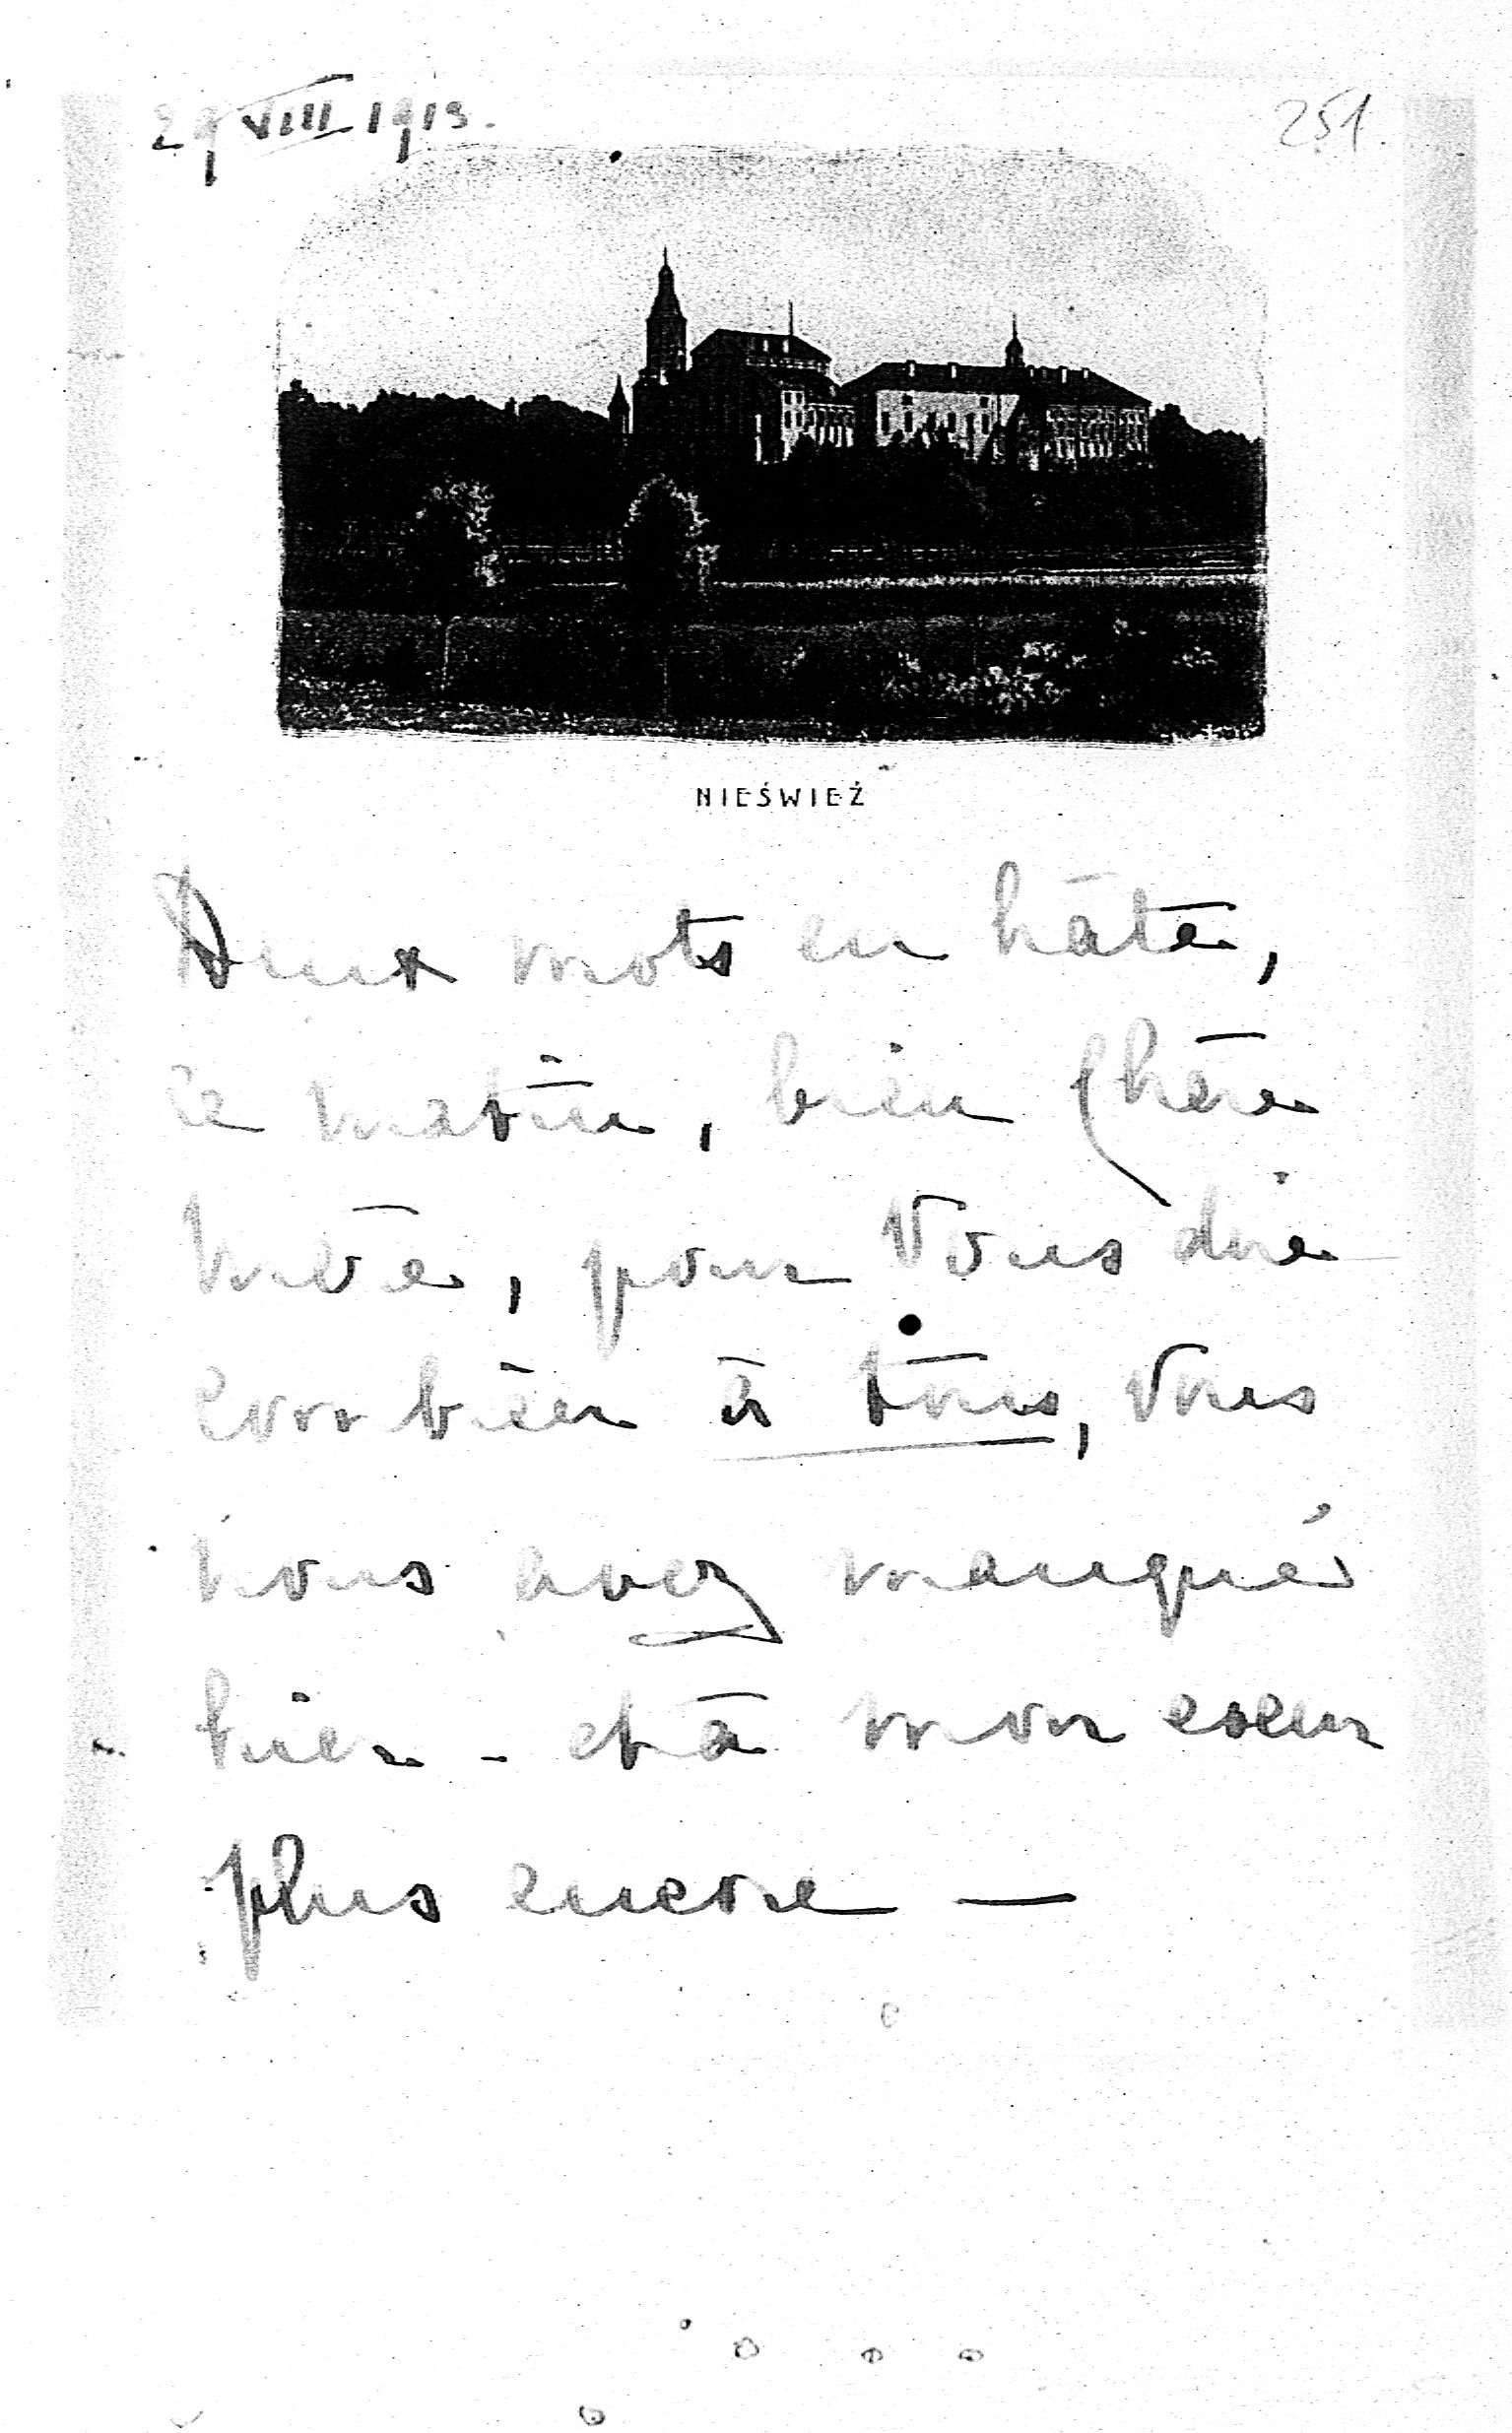 29 VIII 1913.
251
NIEŚWIEŻ
Deux mots en hâte,
ce matin, bien Chère
, pour Vous dire
combien à tous, Vous
nous avez manqué
hier - et à mon cœur
plus encore —